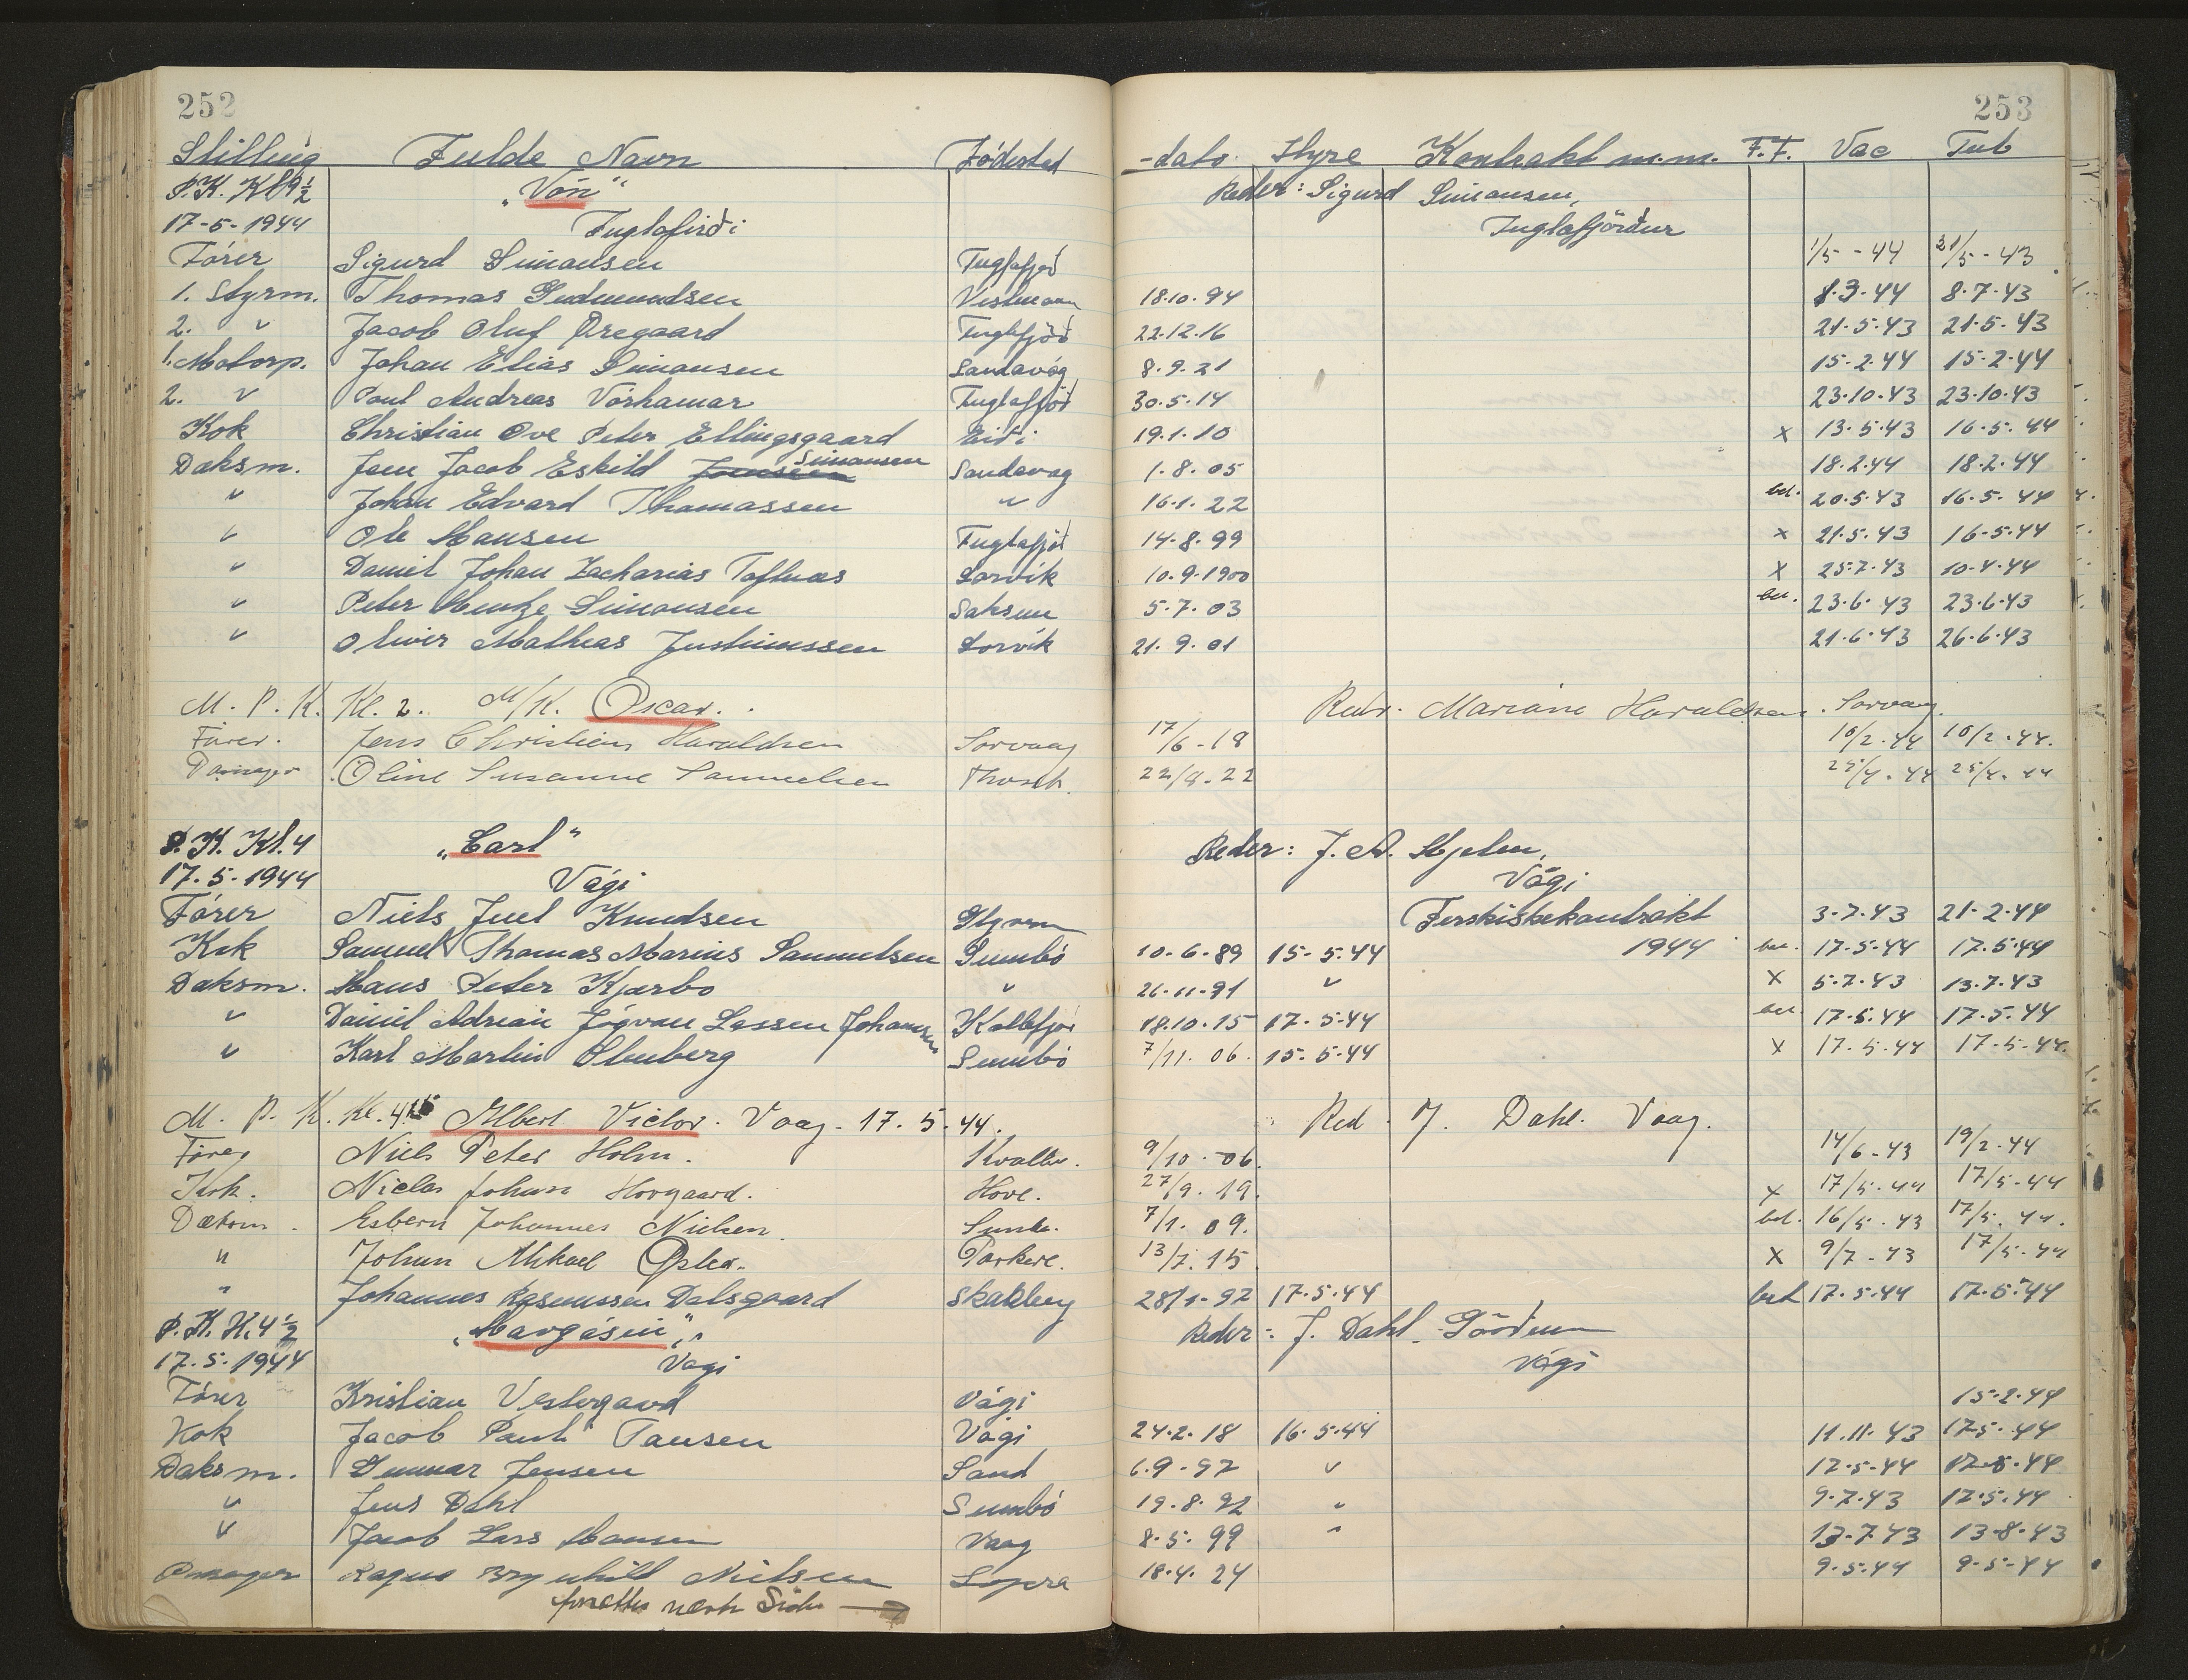 252 253
Stilling Fulde Navn Fødested -dato Hyre Kontrakt m.m. F.F. Vac Tub
P.K. Kl 9½ "Vón" Reder: Sigurd Simonsen,
17-5-1944 Fuglafirði Fuglafjörður
Förer Sigurd Simonsen Fuglafjød 1/5--44 31/5-43
1. Styrm. Thomas Gudmundsen Vestmann 18.10.94 8.3.44 8.7.43
2. " Jacob Oluf Øregaard Fuglefjöd 22.12.16 21.5.43 21.5.43
1. Motorp. Johan Elias Simonsen Sandavóg 8.9.21 15.2.44 15.2.44
2. " Poul Andreas Vórhamar Fuglafjöd 30.5.14 23.10.43 23.10.43
Kok Christian Ove Peter Ellingsgaard Eiði 19.1.10 x 13.5.43 16.5.44
Dæksm. Jens Jacob Eskild Joensen Simonsen Sandavag 1.8.05 18.2.44 18.2.44
" Johan Edvard Thomassen " 16.1.22 bet. 20.5.43 16.5.44
" Ole Hansen Fuglafjd 14.8.99 x 21.5.43 16-5.44
" Daniel Johan Zacharias Toftnæs Lorvik 10.9.1900 x 25.7.43 10.4.44
" Peter Hentze Simonsen Saksun 5.7.03 bet. 23.6.43 23.6.43
" Oliver Mathias Justinussen Lorvik 21.9.01 21.6.43 26.6.43
M.P.K. Kl. 2. M/K. Oscar. Redr. Mariane Haraldsen. Sorvaag.
Förer. Jens Christien Haraldsen Sorvaag 17/6-18 10/2.44 10/2.44.
Passager Oline Susanne Samuelsen Thorsh. 22/8.22 25/4.44 25/4.44
P.K. Kl.4 "Carl" Reder: J. A. Hjelm,
17.5.1944 Vági Vági
Förer Niels Juel Knudsen Styrm Ferskfiskekontrakt 3.7.43 21.2.44
Kok Samuel Thomas Marius Samuelsen Sumbö 10.6.89 15-5.44 1944 bet. 17.5.44 17.5.44
Dæksm. Hans Peter Kjærbo " 26.11.91 " x 5.7.43 13.7.43
" Daniel Adrian Jógvan Lassen Johannesen Kollefjor 18.10.15 17.5.44 bet. 17.5.44 17.5.44
" Karl Martin Stenberg Sumbö 7/11.06. 15.5.44 x 17.5.44 17.5.44.
M.P.K. Kl. 4 Albert Victor. Vaag. 17.5.44. Red. J. Dahl. Vaag.
Förer Niels Peter Holm. Kvalbø. 9/10.06. 14/6-43 19/2.44
Kok. Niclas Johan Hovgaard. Hove. 27/9.19. x 17/5.44 17/5-44
Dæksm. Esbern Johannes Nielsen. Sumb. 7/1.09. bet. 16/5.43 17/5.44.
" Johan Mikael Øster. Porkere. 13/7.15 x 9/7-43 17/5-44
" Johannes Rasmussen Dalsgaard Skaalevig 28/1-92 17.5.44 bet 17.5.44 17.5.44
P.K. K. 4½ "Havgásin" Reder: J. Dahl
17.5.1944 Vagi Vági
Förer Kristian Vestergaard Vági 15.2.44
Kok Jacob Pauli Tausen Vági 24.2.18 16.5.44 11.11.43 17.5.44
Dæksm. Gunnar Jensen Sand 6.9.97 " 17.5.44 17.5.44
" Jens Dahl Sumbö 19.8.92 " 9.7.43 17.5.44
" Jacob Lars Hansen Vaag 8.5.99 " 13.7.43 13-8.43
Passager Ragna Brynhild Nielsen Lopra 18.4.24 9.5.44 9-5-44
fortsættes næste Side →